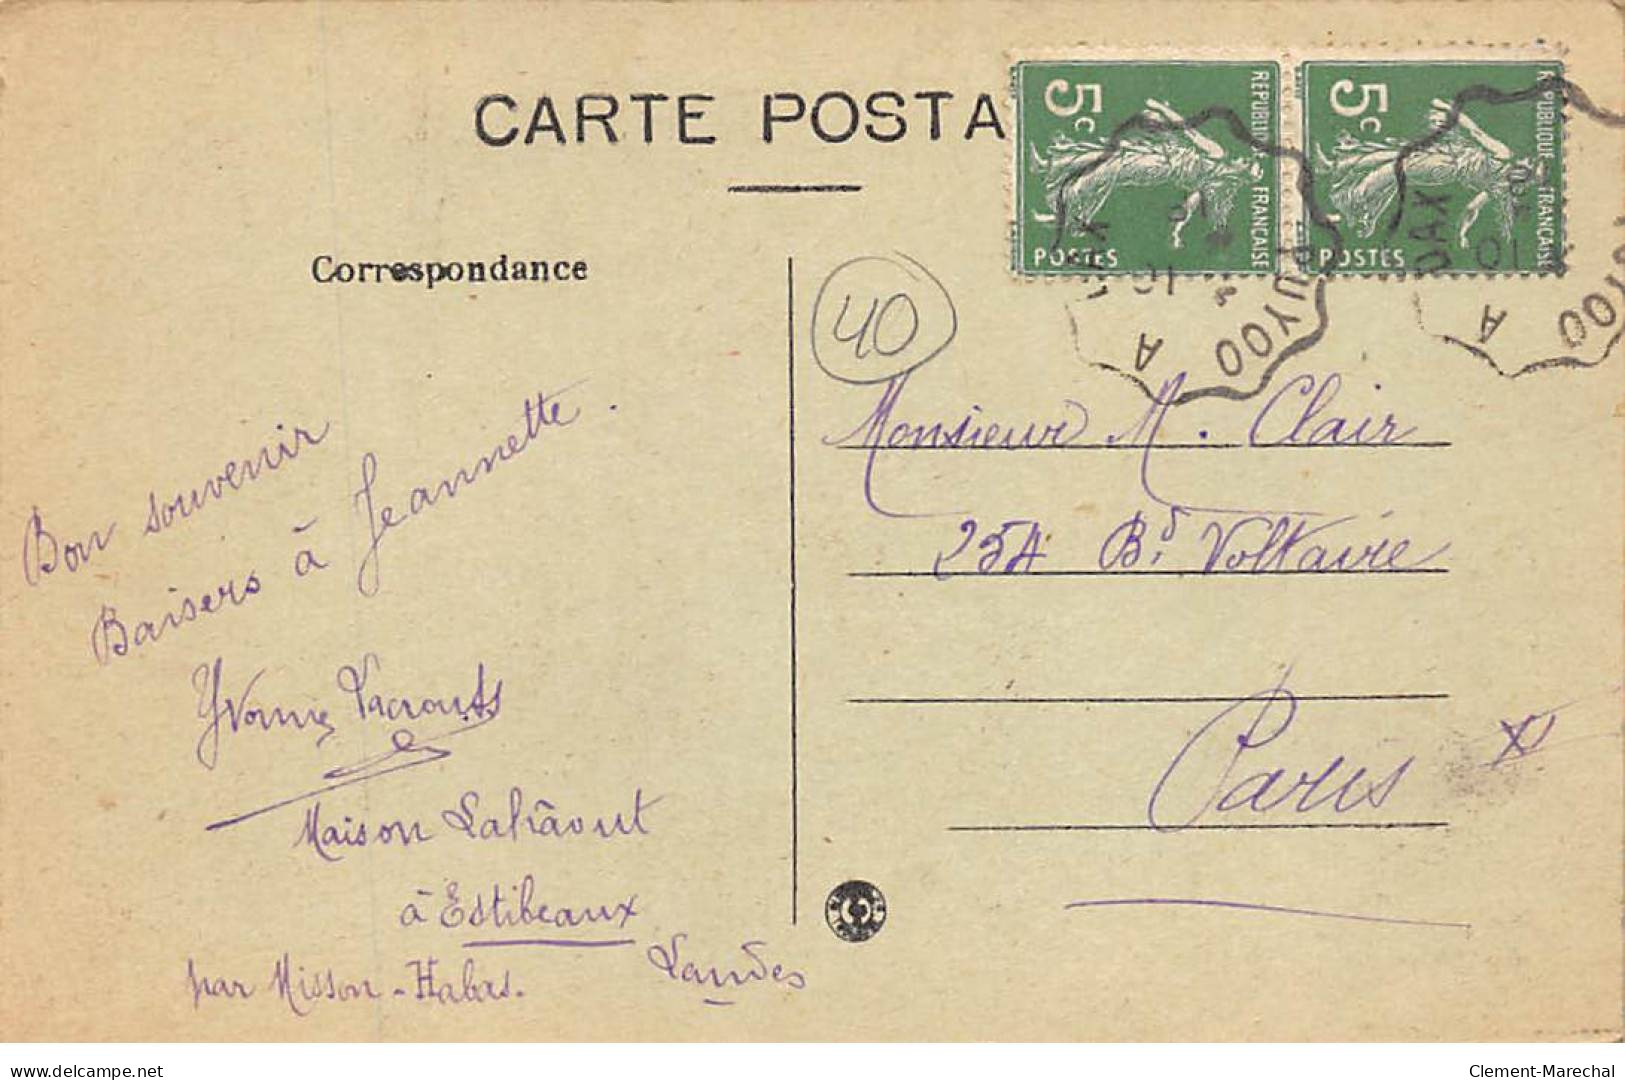 CARTE POSTA
Correspondance
5c
REPUBLIQUE FRANCAISE
POSTES
5c
REPUBLIQUE FRANCAISE
POSTES
PUYOO A
DAX
10
PUYOO A
40
Bon souvenir
Baisers à Jeannette.
Yvonne
Maison
à Estibeaux
Landes
par Misson-Habas.
Monsieur M. Clair
254 Bd. Voltaire
Paris XI
delcampe.net
Clement-Marechal